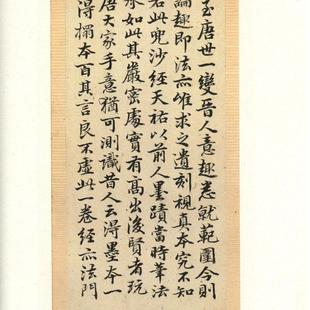 至唐世一變晉人意趣悉就範圍今則
論趣即法亦唯求之遺刻視真本究不知
若此兜沙經天祐以前人墨蹟當時筆法
永如此其嚴密處實有高出後賢者玩
唐大家手意猶可測識昔人云得墨本一
得搨本百其言良不虛此一卷經亦法門